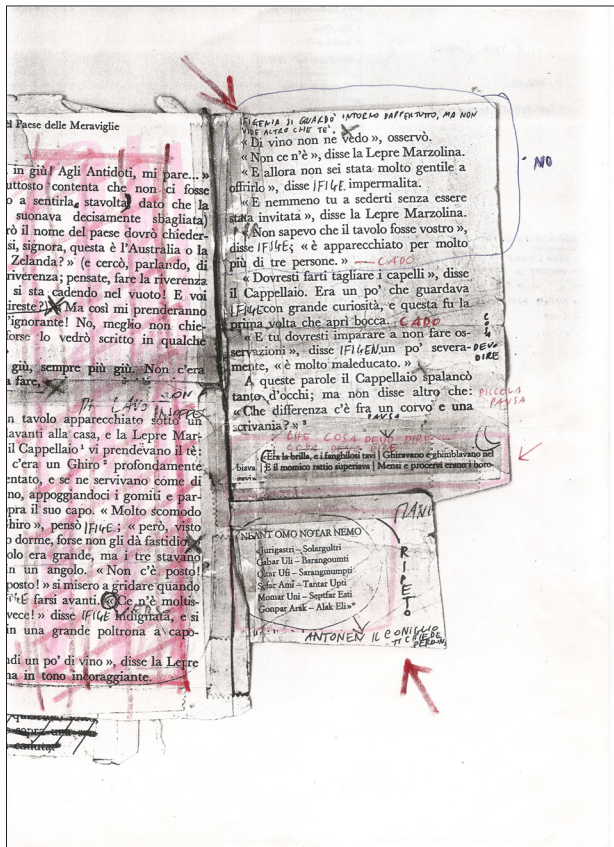 el Paese delle Meraviglie
in giù! Agli Antidoti, mi pare... »
uttosto contenta che non ci fosse
o a sentirla, stavolta, dato che la
suonava decisamente sbagliata)
rò il nome del paese dovrò chieder-
si, signora, questa è l'Australia o la
Zelanda? » (e cercò, parlando, di
riverenza; pensate, fare la riverenza
si sta cadendo nel vuoto! E voi
ireste?) « Ma così mi prenderanno
'ignorante! No, meglio non chie-
forse lo vedrò scritto in qualche
giù, sempre più giù. Non c'era
a fare,
n tavolo apparecchiato sotto un
davanti alla casa, e la Lepre Mar-
l Cappellaio¹ vi prendevano il tè:
c'era un Ghiro² profondamente
entato, e se ne servivano come di
no, appoggiandoci i gomiti e par-
pra il suo capo. « Molto scomodo
hiro », pensò IFIGE; « però, visto
o dorme, forse non gli dà fastidio.
olo era grande, ma i tre stavano
n un angolo. « Non c'è posto!
posto! » si misero a gridare quando
IFIGE farsi avanti. « Ce n'è moltis-
vece! » disse IFIGE indignata, e si
in una grande poltrona a capo-
ndi un po' di vino », disse la Lepre
na in tono incoraggiante.
sopra una
caduta.
IFIGENIA SI GUARDÒ INTORNO DAPPERTUTTO, MA NON
VIDE ALTRO CHE TE'.
« Di vino non ne vedo », osservò.
« Non ce n'è », disse la Lepre Marzolina.
« E allora non sei stata molto gentile a
offrirlo », disse IFIGE. impermalita.
« E nemmeno tu a sederti senza essere
stata invitata », disse la Lepre Marzolina.
« Non sapevo che il tavolo fosse vostro »,
disse IFIGE; « è apparecchiato per molto
più di tre persone. » — CADO
NO
« Dovresti farti tagliare i capelli », disse
il Cappellaio. Era un po' che guardava
IFIGE con grande curiosità, e questa fu la
prima volta che aprì bocca. CADO
« E tu dovresti imparare a non fare os-
servazioni », disse IFIGEN, un po' severa-
mente, « è molto maleducato. »
COSA
DEVO
DIRE
A queste parole il Cappellaio spalancò
tanto d'occhi; ma non disse altro che:
« Che differenza c'è fra un corvo e una
scrivania? »³
PICCOLA
PAUSA
PAUSA
CHE COSA DEVO DIRE
COSA DEVO DIRE
Era la brilla, e i fanghilosi tavi | Ghiravano e ghimblavano nel
biava | E il momico rattio superiava | Mensi e procervi erano i boro-
pavin
NEANT OMO NOTAR NEMO
Jurigastri – Solargultri
Gabar Uli – Barangoumti
Oltar Ufi – Sarangmumpti
Sofar Ami – Tantar Upti
Momar Uni – Septfar Esti
Gonpar Arak – Alak Eli»*
RIPETO
ANTONEN IL CONIGLIO
TI CHIEDE
PERDON,